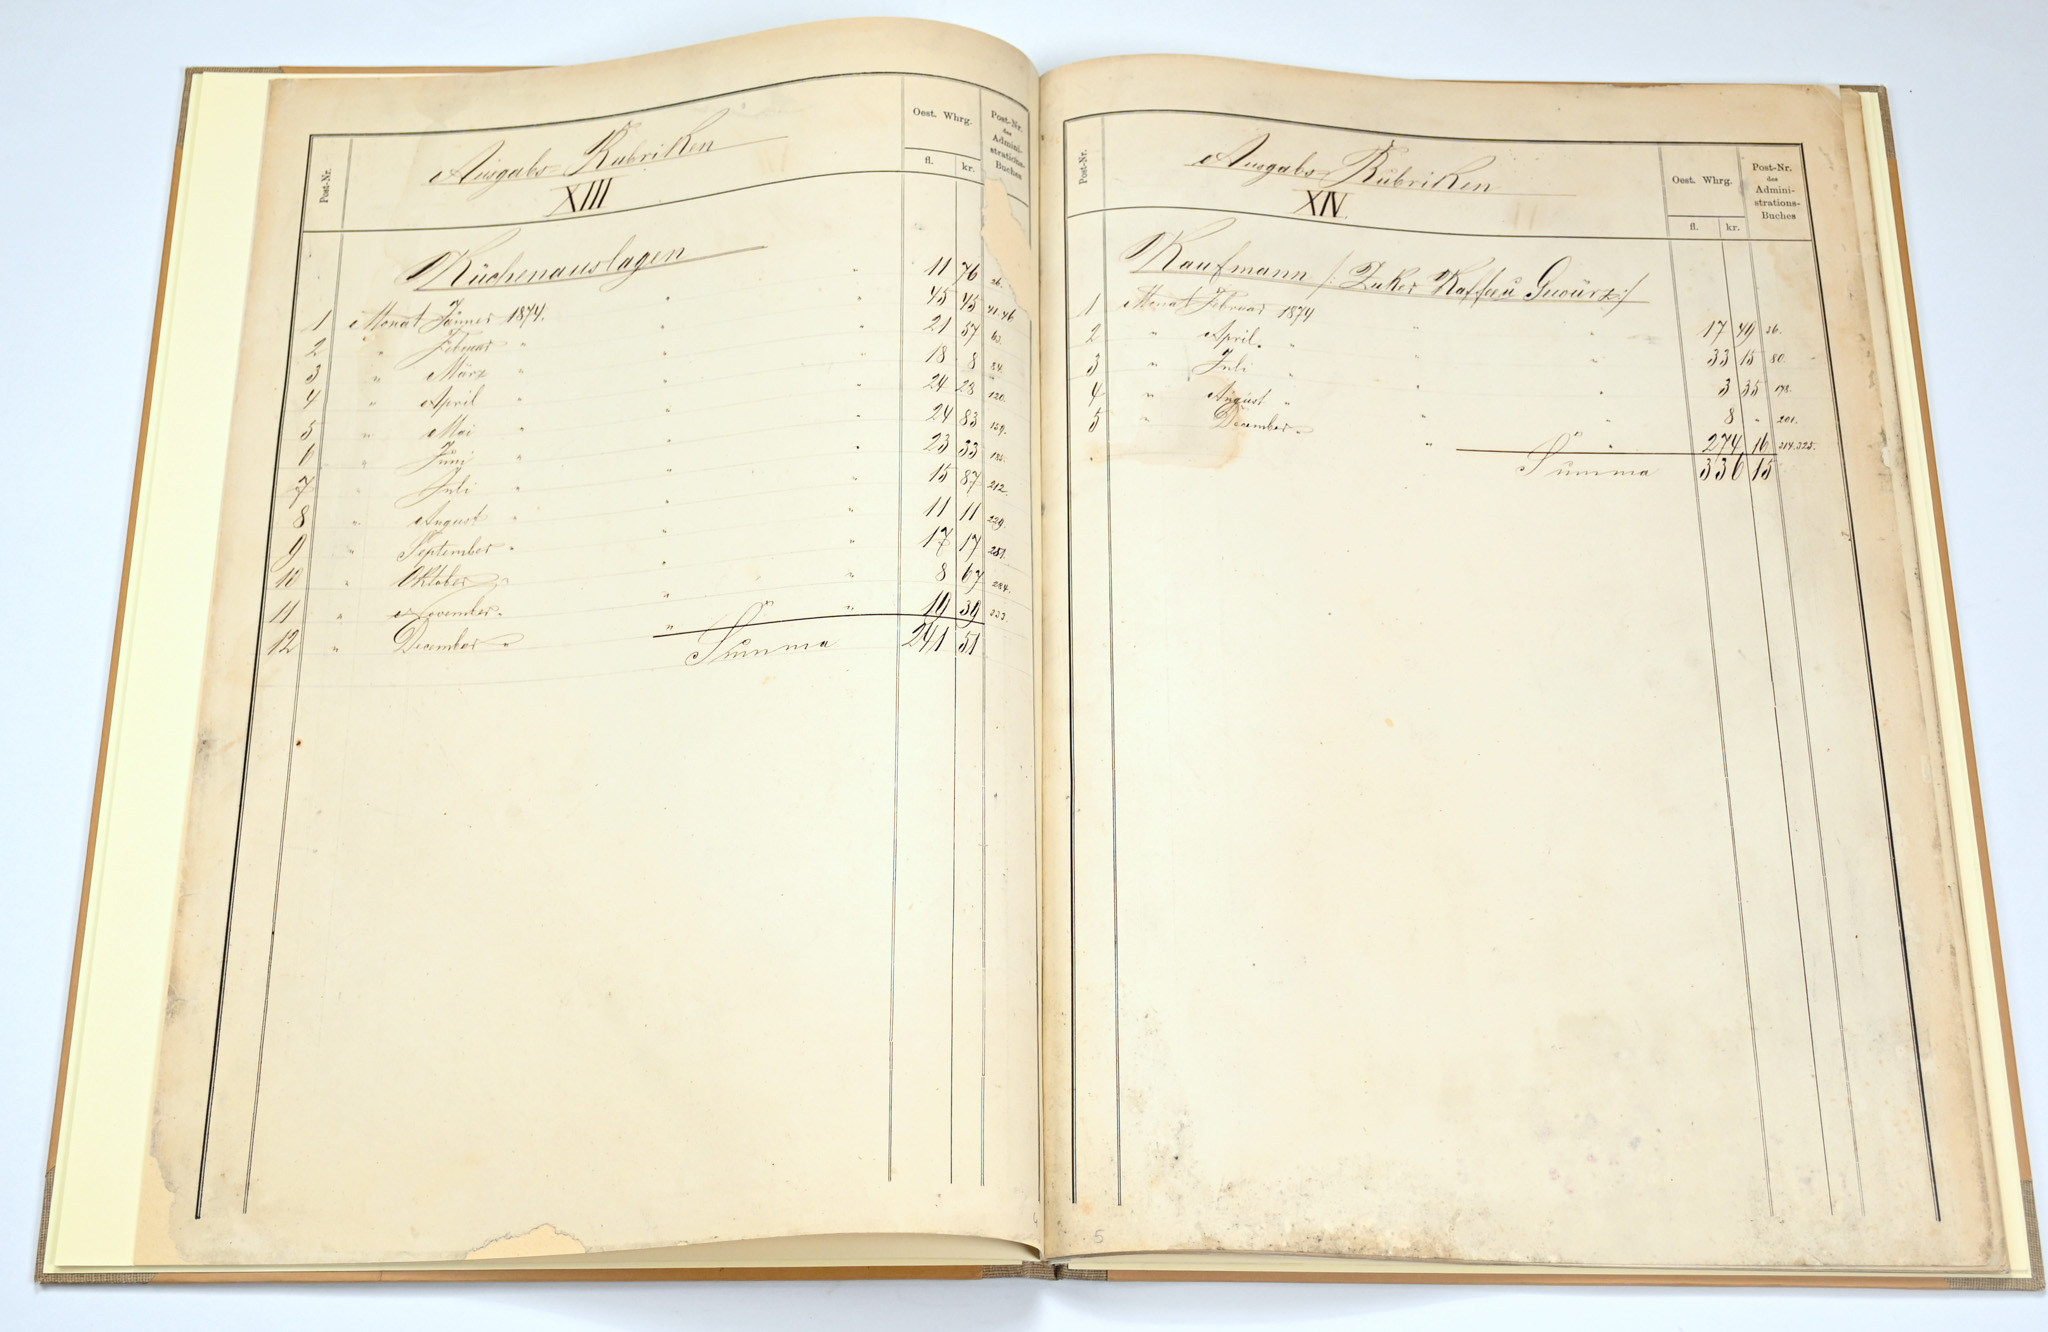 Post-Nr.
Ausgabs-Rubriken
XIII
Oest. Whrg.
fl. kr.
Post-Nr.
des
Admini-
strations-
Buches
Küchenauslagen
1 Monat Jänner 1874. " " 11 76 26.
2 " Februar " " " 45 45 41.46
3 " März " " " 21 57 63.
4 " April " " " 18 8 84.
5 " Mai " " " 24 28 120.
6 " Juni " " " 24 83 159.
7 " Juli " " " 23 33 185.
8 " August " " " 15 87 212.
9 " September " " " 11 11 229.
10 " Oktober " " " 17 17
11 " November " " " 8 67 284.
12 " December " " " 19 39 333.
Summa 241 51
Post-Nr.
Ausgabs-Rubriken
XIV.
Oest. Whrg.
fl. kr.
Post-Nr.
des
Admini-
strations-
Buches
Kaufmann /: Zuker Kaffee u Gewürz :/
1 Monat Februar 1874 " " 17 49 26.
2 " April " " " 33 15 80.
3 " Juli " " " 3 35 178.
4 " August " " " 8 " 201.
5 " December " " " 274 16 314.325.
Summa 336 15
5